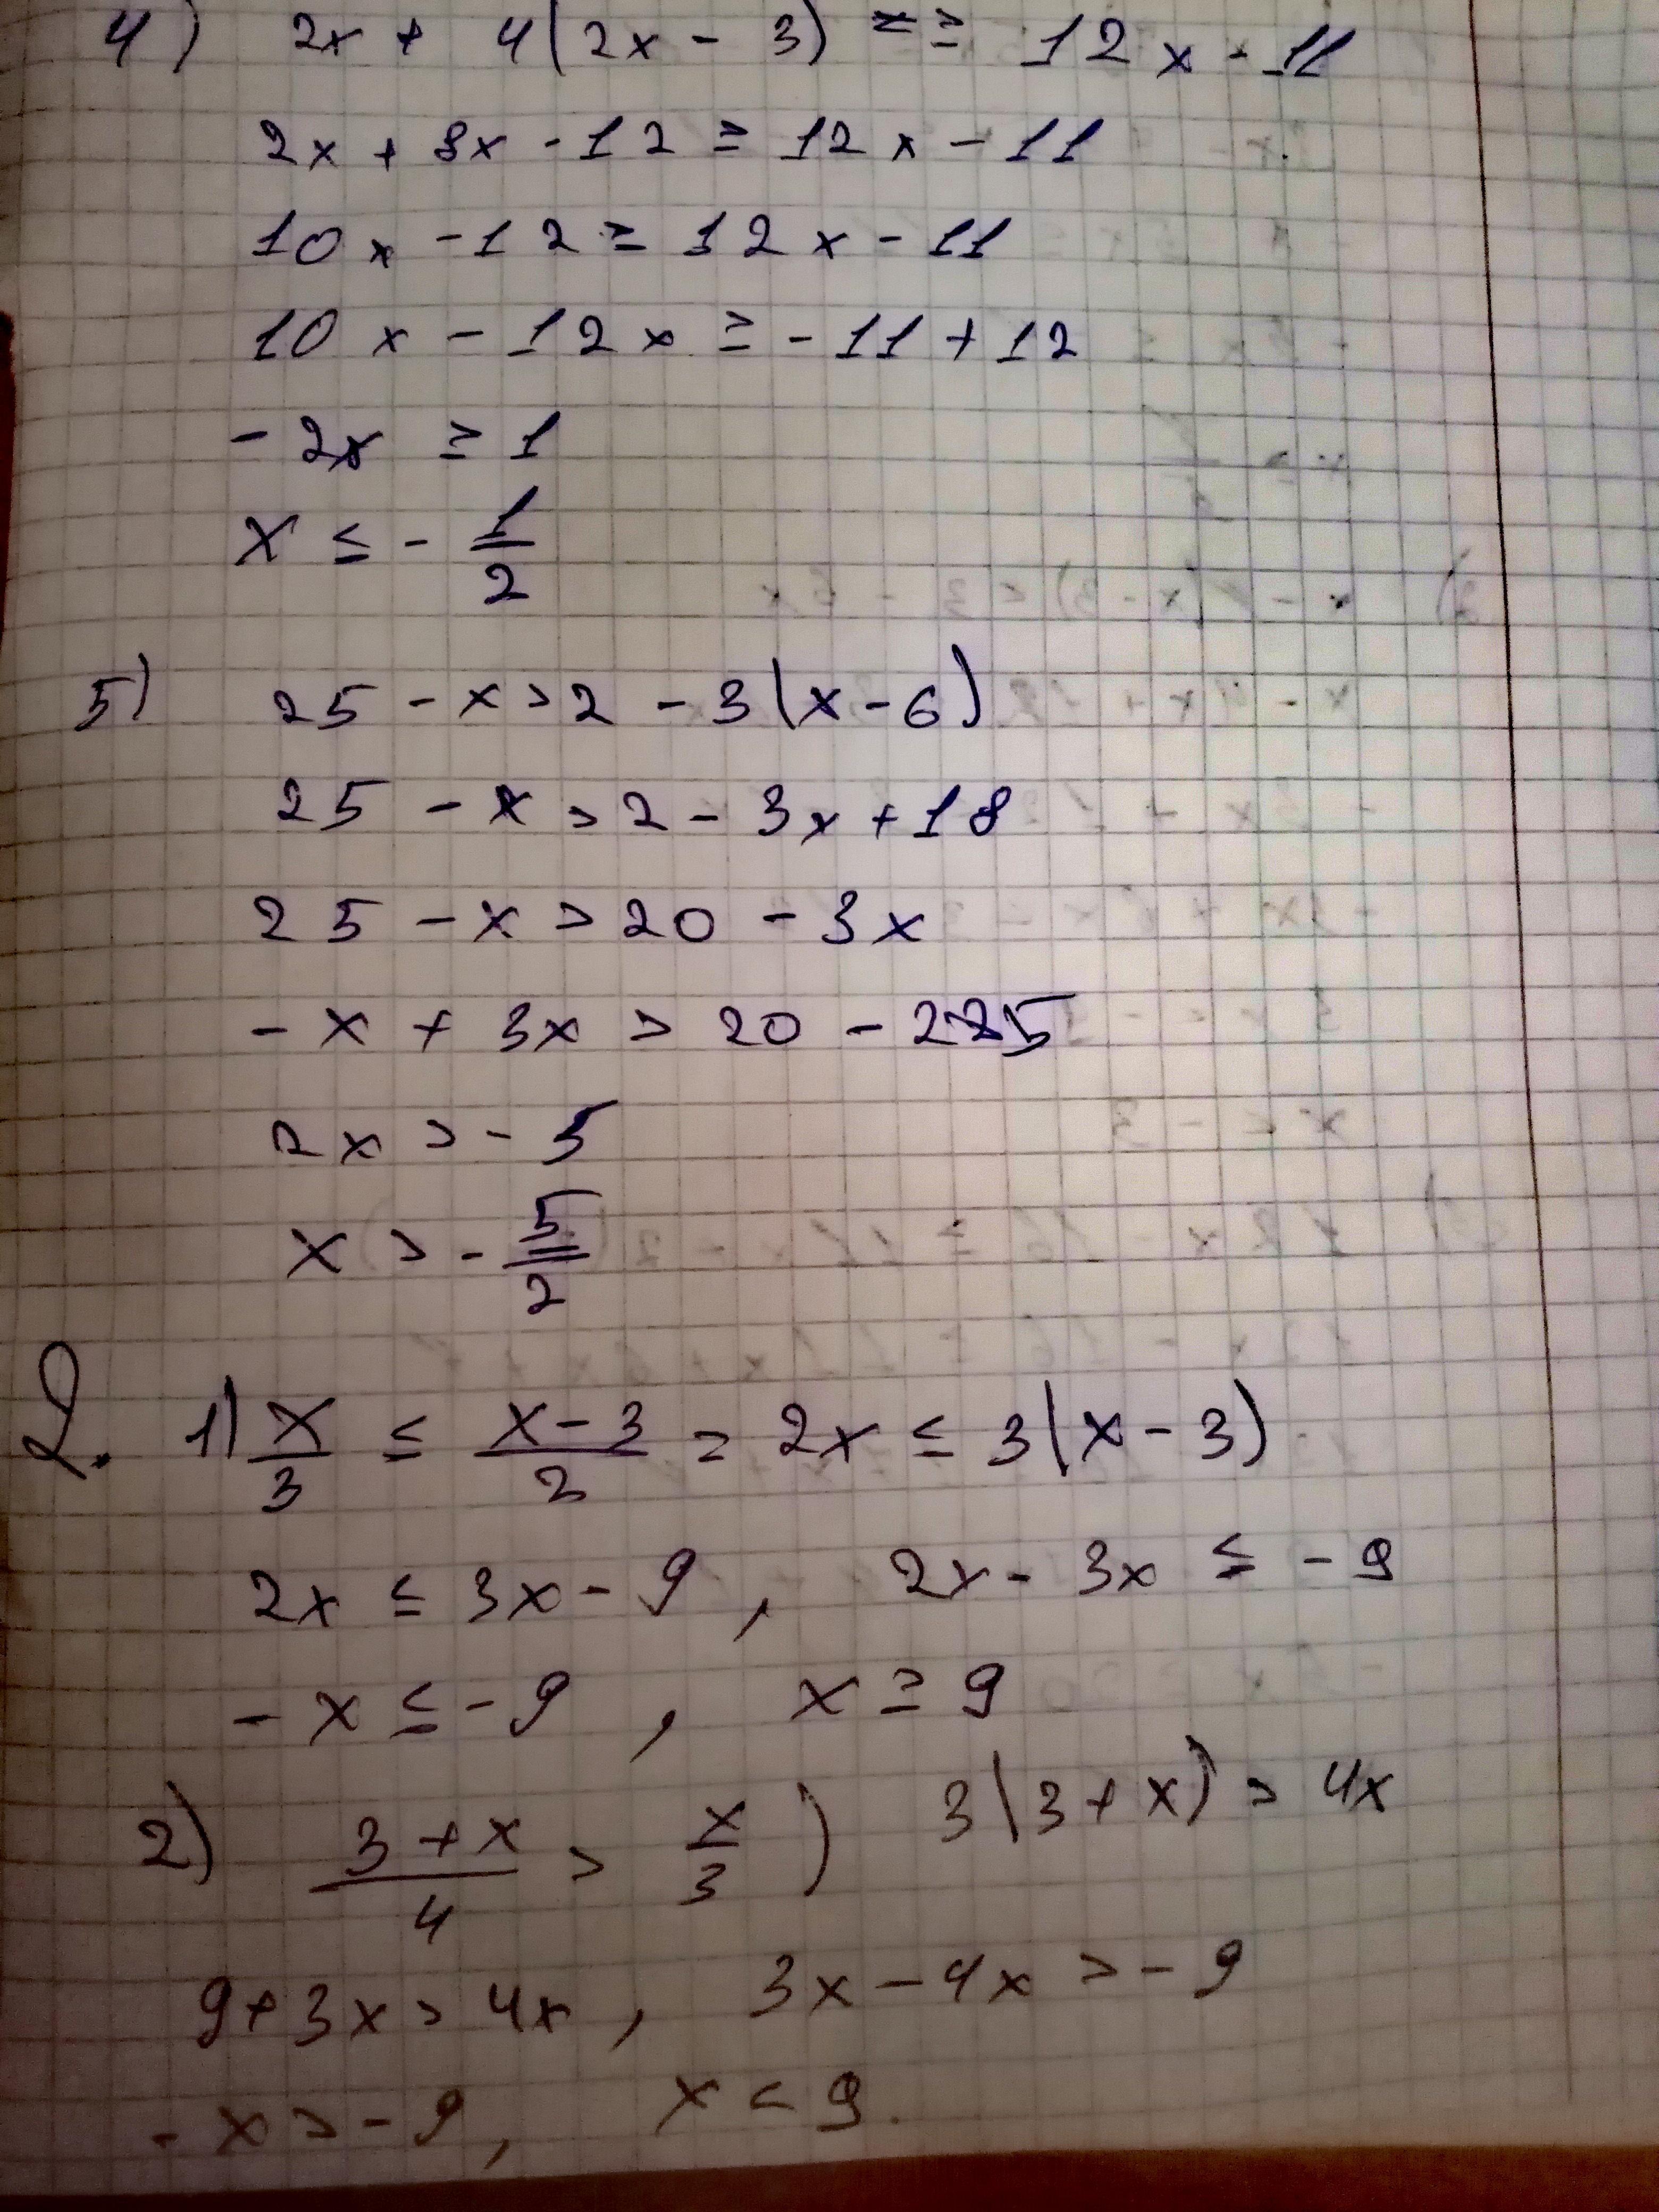 4) 2x + 4(2x - 3) ≥ 12x - 11
2x + 8x - 12 ≥ 12x - 11
10x - 12 ≥ 12x - 11
10x - 12x ≥ -11 + 12
-2x ≥ 1
x ≤ - 1/2
5) 25 - x > 2 - 3(x - 6)
25 - x > 2 - 3x + 18
25 - x > 20 - 3x
-x + 3x > 20 - 25
2x > -5
x > - 5/2
2. 1) x/3 ≤ (x - 3)/2 = 2x ≤ 3(x - 3)
2x ≤ 3x - 9, 2x - 3x ≤ -9
-x ≤ -9, x ≥ 9
2) (3 + x)/4 > x/3 ) 3(3 + x) > 4x
9 + 3x > 4x, 3x - 4x > -9
-x > -9, x < 9.